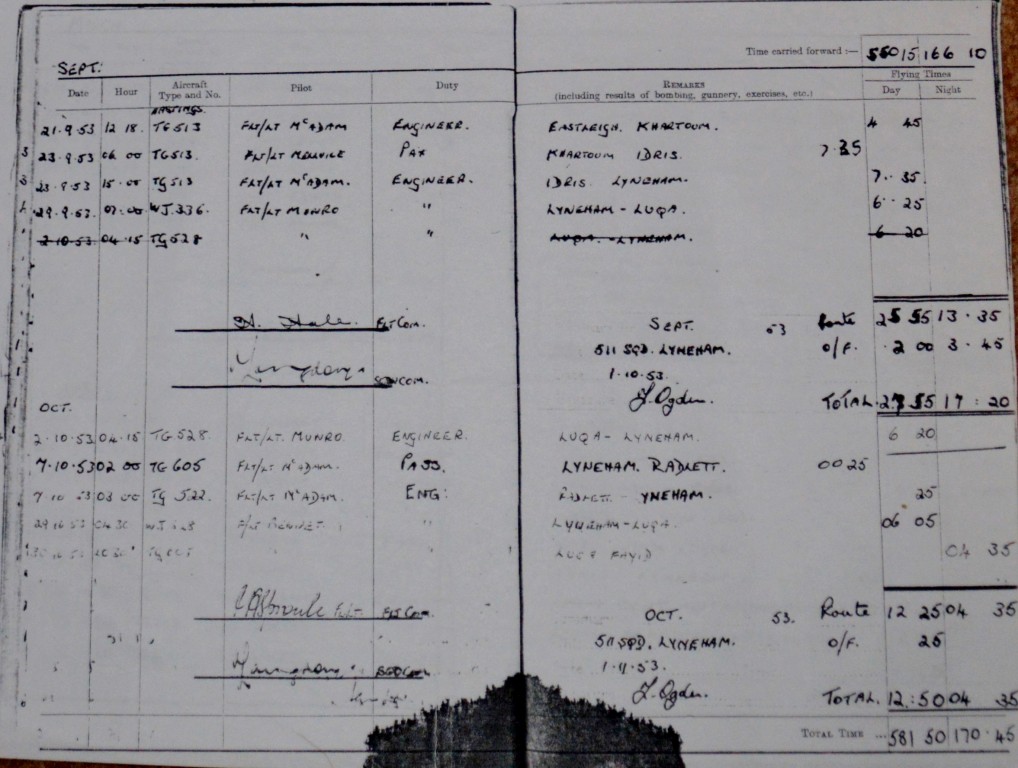 Time carried forward :— 560 15 166 10
SEPT.
Date Hour Aircraft Type and No. Pilot Duty REMARKS (including results of bombing, gunnery, exercises, etc.) Flying Times Day Night
HASTINGS.
21·9·53 12 18. TG513 FLT/LT McADAM ENGINEER. EASTLEIGH. KHARTOUM. 4 45
23·9·53 06 00 TG513. FLT/LT MELLVILE PAX KHARTOUM IDRIS. 7·35
23·9·53 15·00 TG513 FLT/LT McADAM. ENGINEER. IDRIS LYNEHAM. 7·35
29·9·53. 07:00 WJ.336. FLT/LT MUNRO " LYNEHAM - LUQA. 6·25
2·10·53 04·15 TG528 " " LUQA. - LYNEHAM. 6 20
FLT COM. SEPT. 53 Route 25 55 13·35
511 SQD. LYNEHAM. O/F. 2 00 3·45
SQN COM. 1·10·53.
L. Ogden. TOTAL. 27 55 17:20
OCT.
2·10·53 04·15 TG 528. FLT/LT. MUNRO. ENGINEER. LUQA - LYNEHAM. 6 20
7·10·53 02 00 TG 605 FLT/LT McADAM. PASS. LYNEHAM. RADLETT. 00 25
7 10 53 03 00 TG 522. FLT/LT McADAM. ENG: RADLETT - YNEHAM. 25
04 30 " LYNEHAM - LUQA. 06 05
LUQA FAYID 04 35
FLT Com. OCT. 53. Route 12 25 04 35
511 SQD. LYNEHAM. O/F. 25
SQD Com 1·11·53.
L. Ogden. TOTAL. 12:50 04 35
TOTAL TIME ... 581 50 170·45